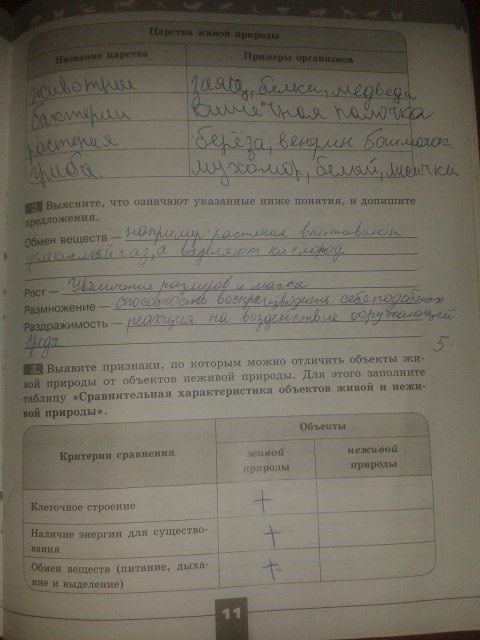 Царства живой природы
Название царства Примеры организмов
животные заяц, белка, медведь
бактерии кишечная палочка
растения берёза, венерин башмачок
грибы мухомор, белый, лисички
2 Выясните, что означают указанные ниже понятия, и допишите
предложения.
Обмен веществ — например: растения впитывают
углекислый газ, а выделяют кислород
Рост — Увеличение размеров и массы
Размножение — способность воспроизводить себе подобных
Раздражимость — реакция на воздействие окружающей
среды
5
3 Выявите признаки, по которым можно отличить объекты жи-
вой природы от объектов неживой природы. Для этого заполните
таблицу «Сравнительная характеристика объектов живой и нежи-
вой природы».
Критерии сравнения Объекты
живой природы неживой природы
Клеточное строение +
Наличие энергии для существо-
вания +
Обмен веществ (питание, дыха-
ние и выделение) +
11